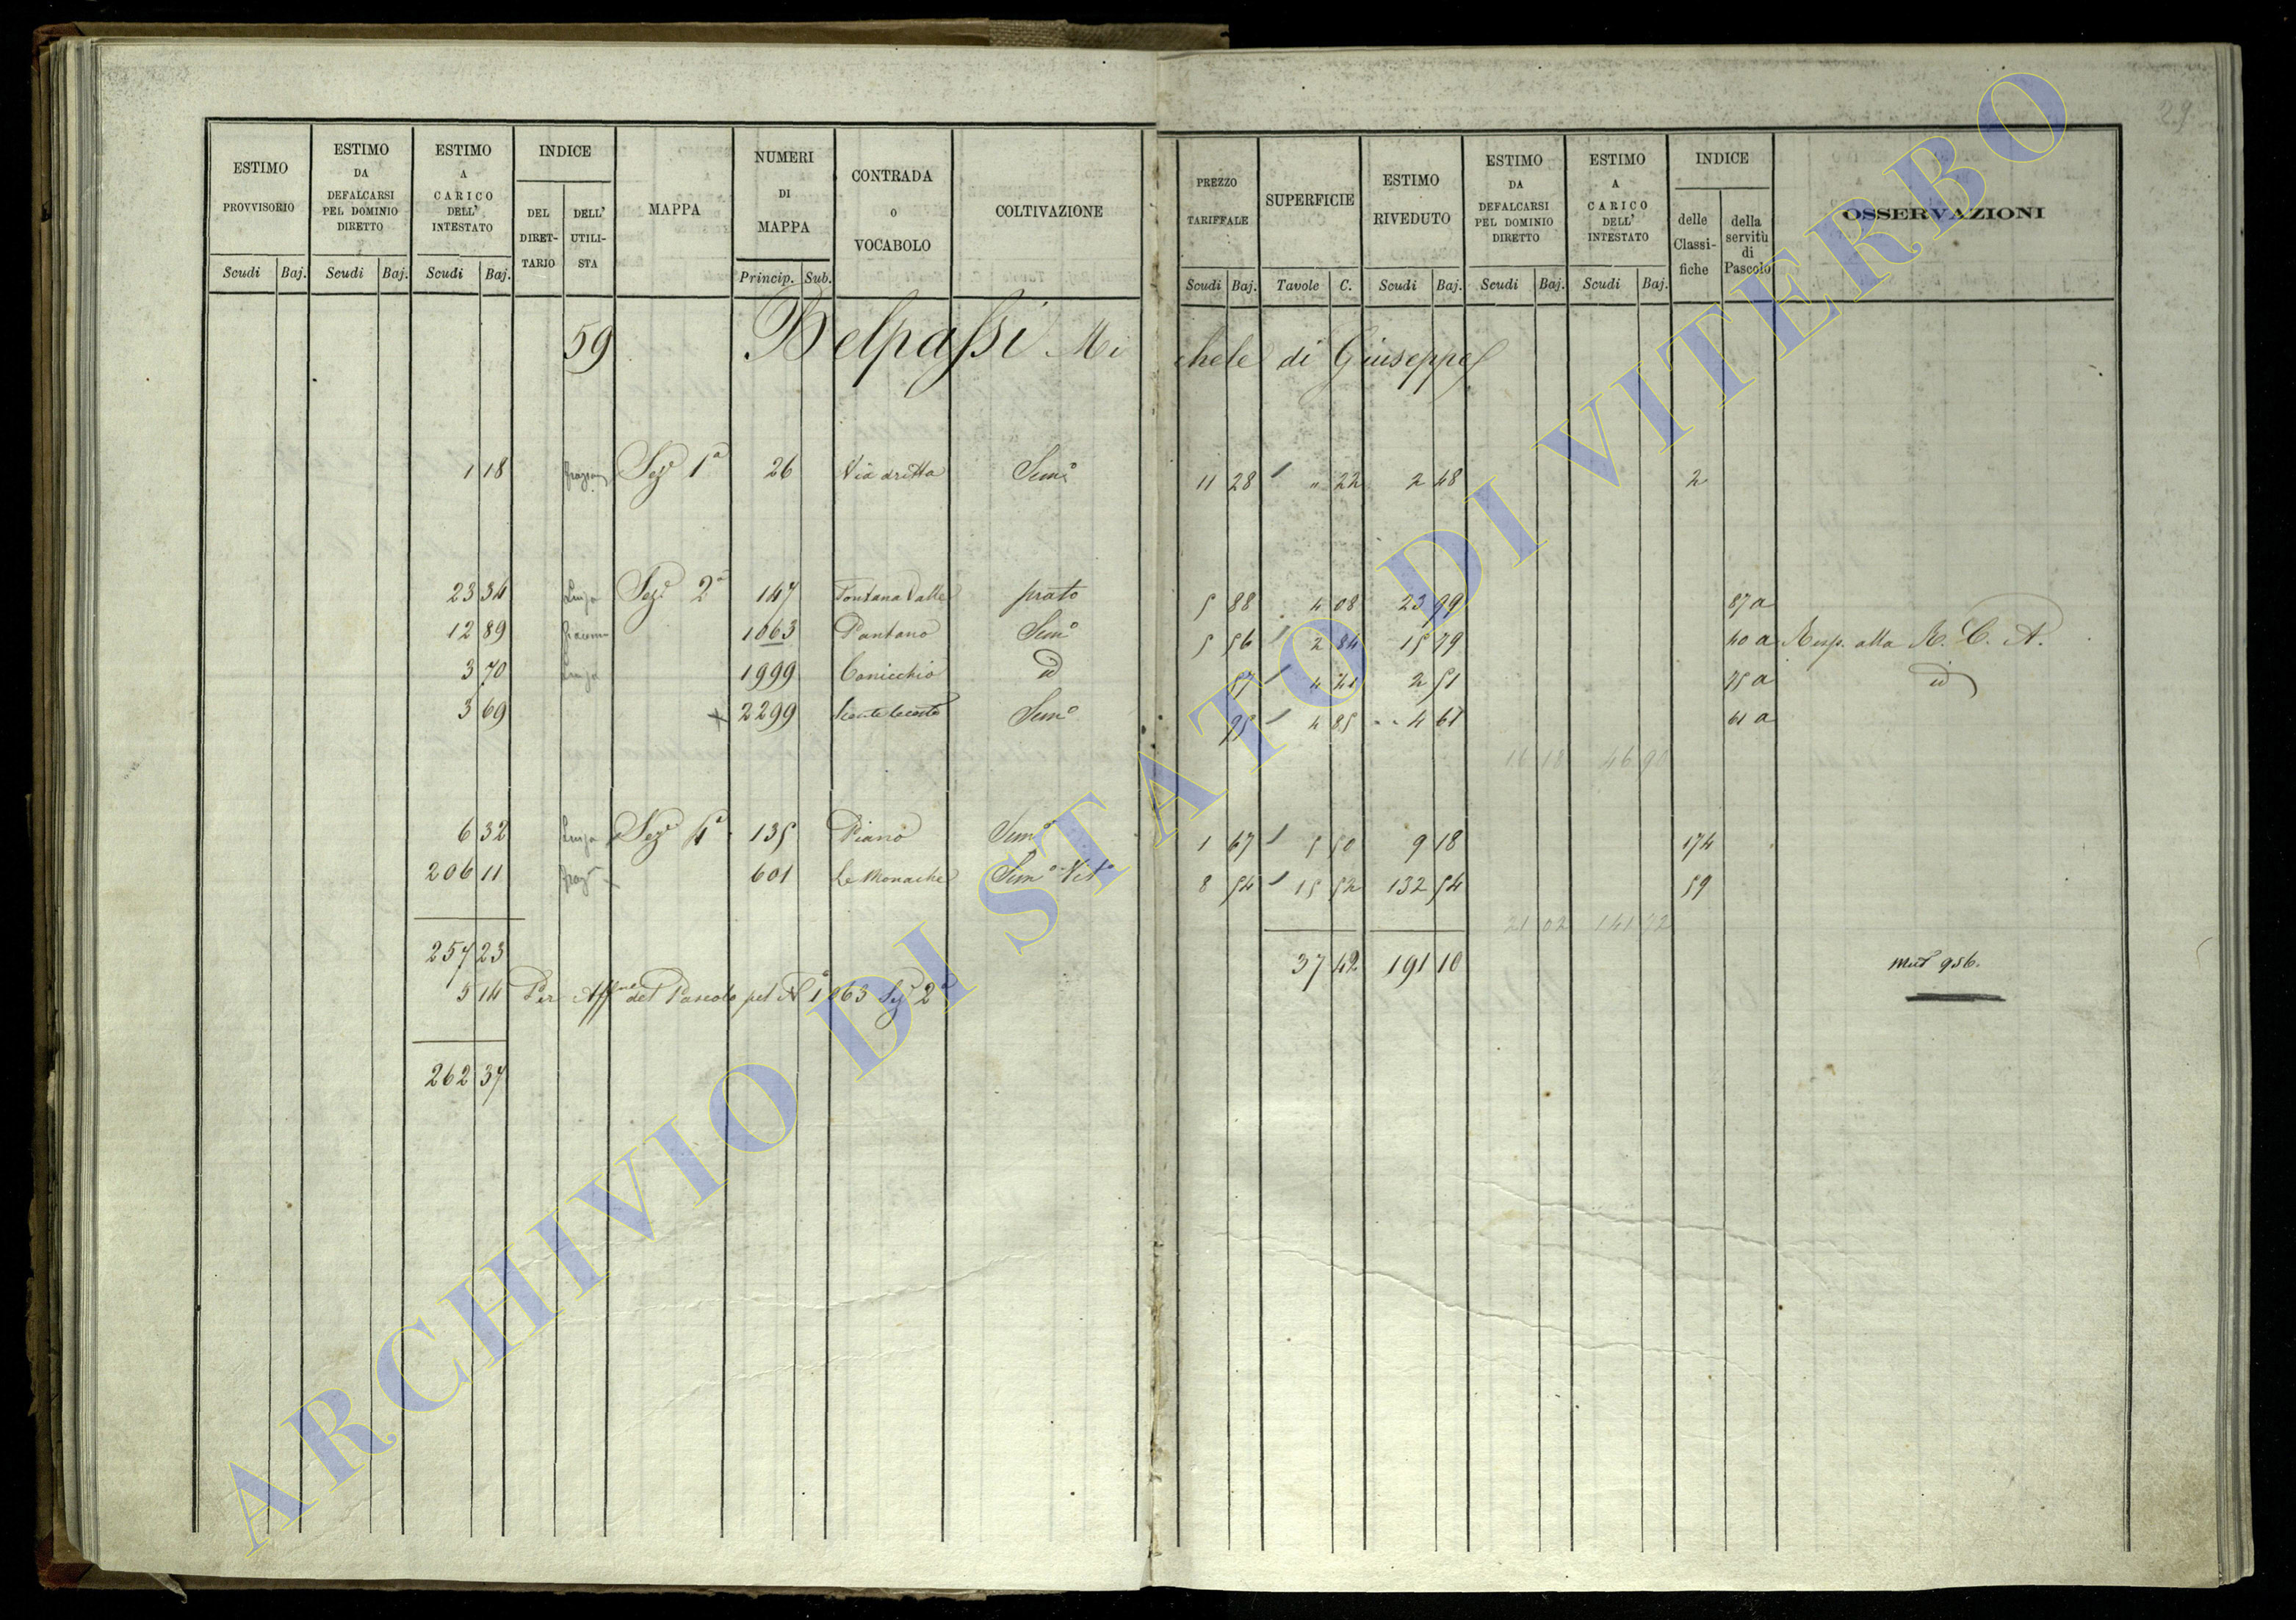 29
ESTIMO PROVVISORIO Scudi Baj.
ESTIMO DA DEFALCARSI PEL DOMINIO DIRETTO Scudi Baj.
ESTIMO A CARICO DELL' INTESTATO Scudi Baj.
INDICE DEL DIRET-TARIO DELL' UTILI-STA
MAPPA
NUMERI DI MAPPA Princip. Sub.
CONTRADA O VOCABOLO
COLTIVAZIONE
PREZZO TARIFFALE Scudi Baj.
SUPERFICIE Tavole C.
ESTIMO RIVEDUTO Scudi Baj.
ESTIMO DA DEFALCARSI PEL DOMINIO DIRETTO Scudi Baj.
ESTIMO A CARICO DELL' INTESTATO Scudi Baj.
INDICE delle Classi-fiche della servitù di Pascolo
OSSERVAZIONI
59 Belpassi Michele di Giuseppe
1 18 Sezᵉ 1ᵃ 26 Via dritta Semᵒ 11 28 " 22 2 48 2
23 34 Sezᵉ 2ᵃ 147 Fontana Valle prato 5 88 4 08 23 99 87 a
12 89 1063 Pantano Semᵒ 5 56 2 84 15 79 40 a Risp. alla R. C. A.
3 70 1999 Conicchio id 57 4 41 2 51 75 a id
3 69 2299 Semᵒ 95 4 85 4 61 61 a
16 18 46 90
6 32 Sezᵉ 4ᵃ 135 Piano Semᵒ 1 67 5 50 9 18 174
206 11 601 Le Monache Semᵒ Vitᵒ 8 54 15 52 132 54 59
21 02 141 72
257 23 37 42 191 10 Mut 956.
5 14 Per Affⁿᵉ del Pascolo pel Nᵒ 1063 Sezᵉ 2ᵃ
262 37
ARCHIVIO DI STATO DI VITERBO